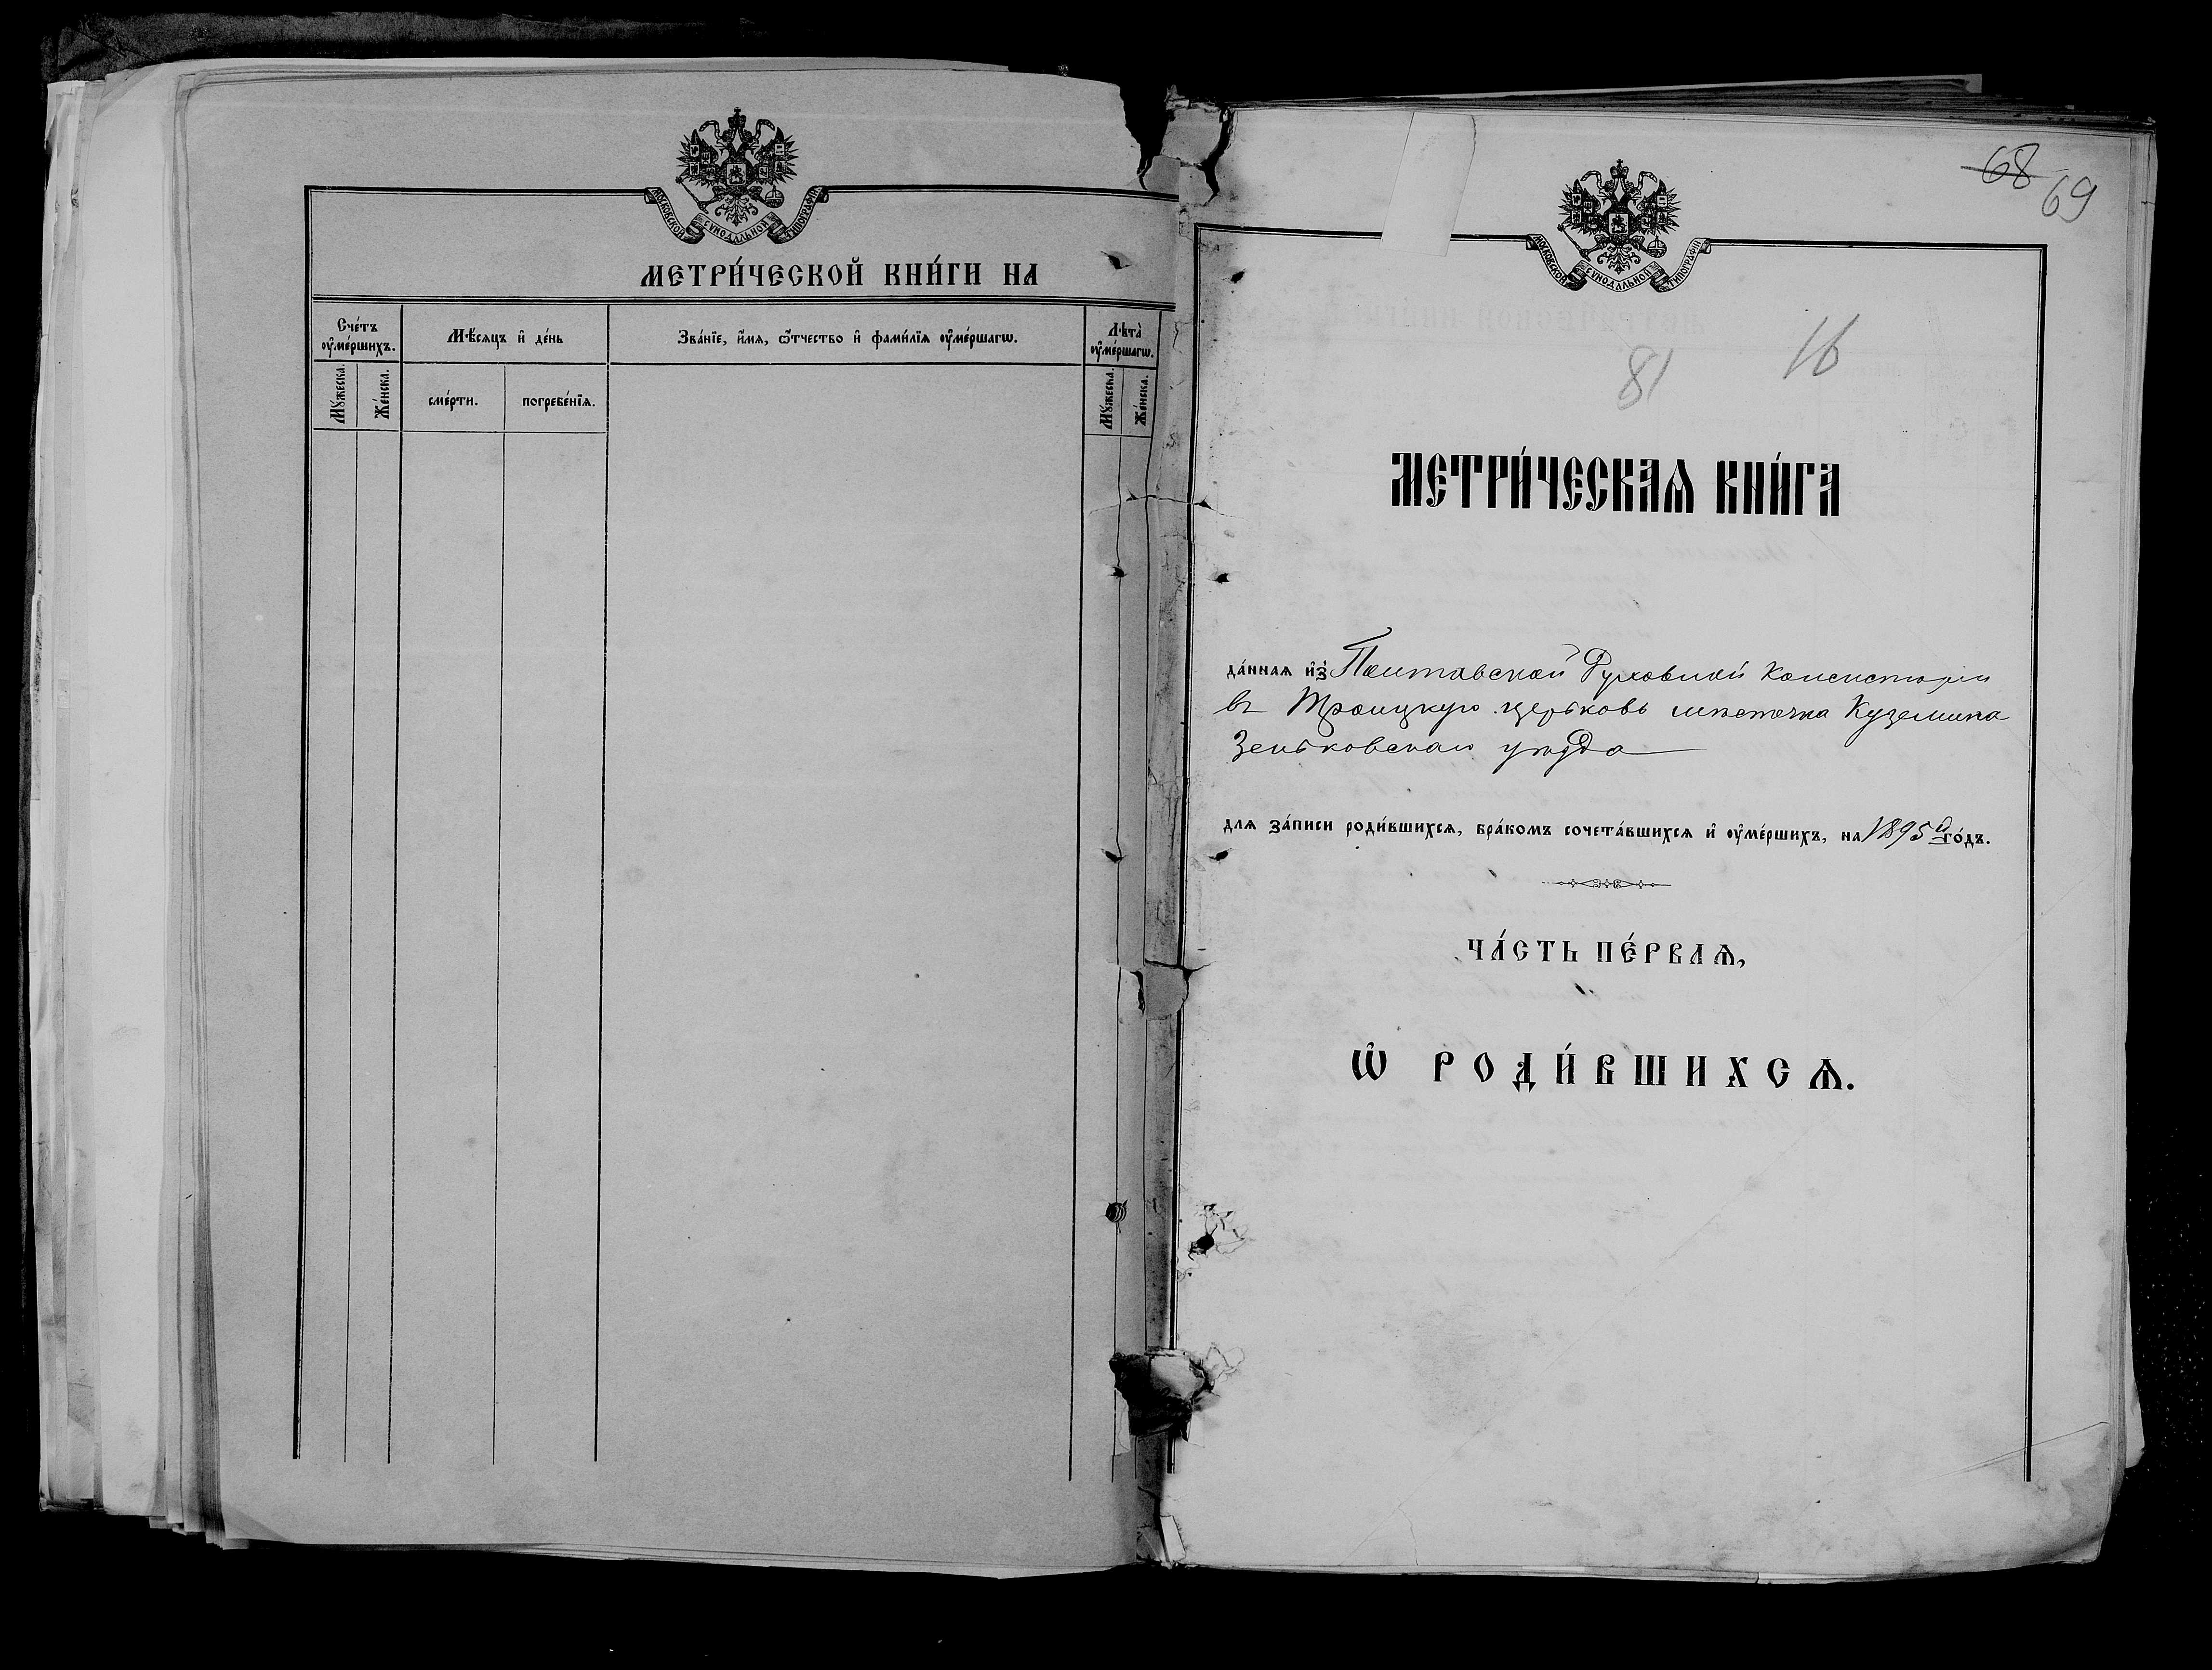 МОСКОВСКОЙ СѴНОДАЛЬНОЙ ТИПОГРАФІИ
МЕТРИ́ЧЕСКОЙ КНИ́ГИ НА
Сче́тъ ᲂу҆ме́ршихъ.
Мѣ́сяцъ и҆ де́нь
Зва́нїе, и҆́мѧ, ѻ҆́тчество и҆ фами́лїѧ ᲂу҆ме́ршагѡ.
Лѣта̀ ᲂу҆ме́ршагѡ.
Мꙋ́жеска.
Же́нска.
сме́рти.
погребе́нїѧ.
Мꙋ́жеска.
Же́нска.
68 69
МОСКОВСКОЙ СѴНОДАЛЬНОЙ ТИПОГРАФІИ
81 16
МЕТРИ́ЧЕСКАѦ КНИ́ГА
да́ннаѧ и҆з̾ Полтавской Духовной Консисторіи
въ Троицкую церковь мѣстечка Куземина
Зеньковскаго уѣзда
длѧ за́писи роди́вшихсѧ, бра́комъ сочета́вшихсѧ и҆ ᲂу҆ме́ршихъ, на 1895 й го́дъ.
ЧА́СТЬ ПЕ́РВАѦ,
Ѡ҆ РОДИ́ВШИХСѦ.